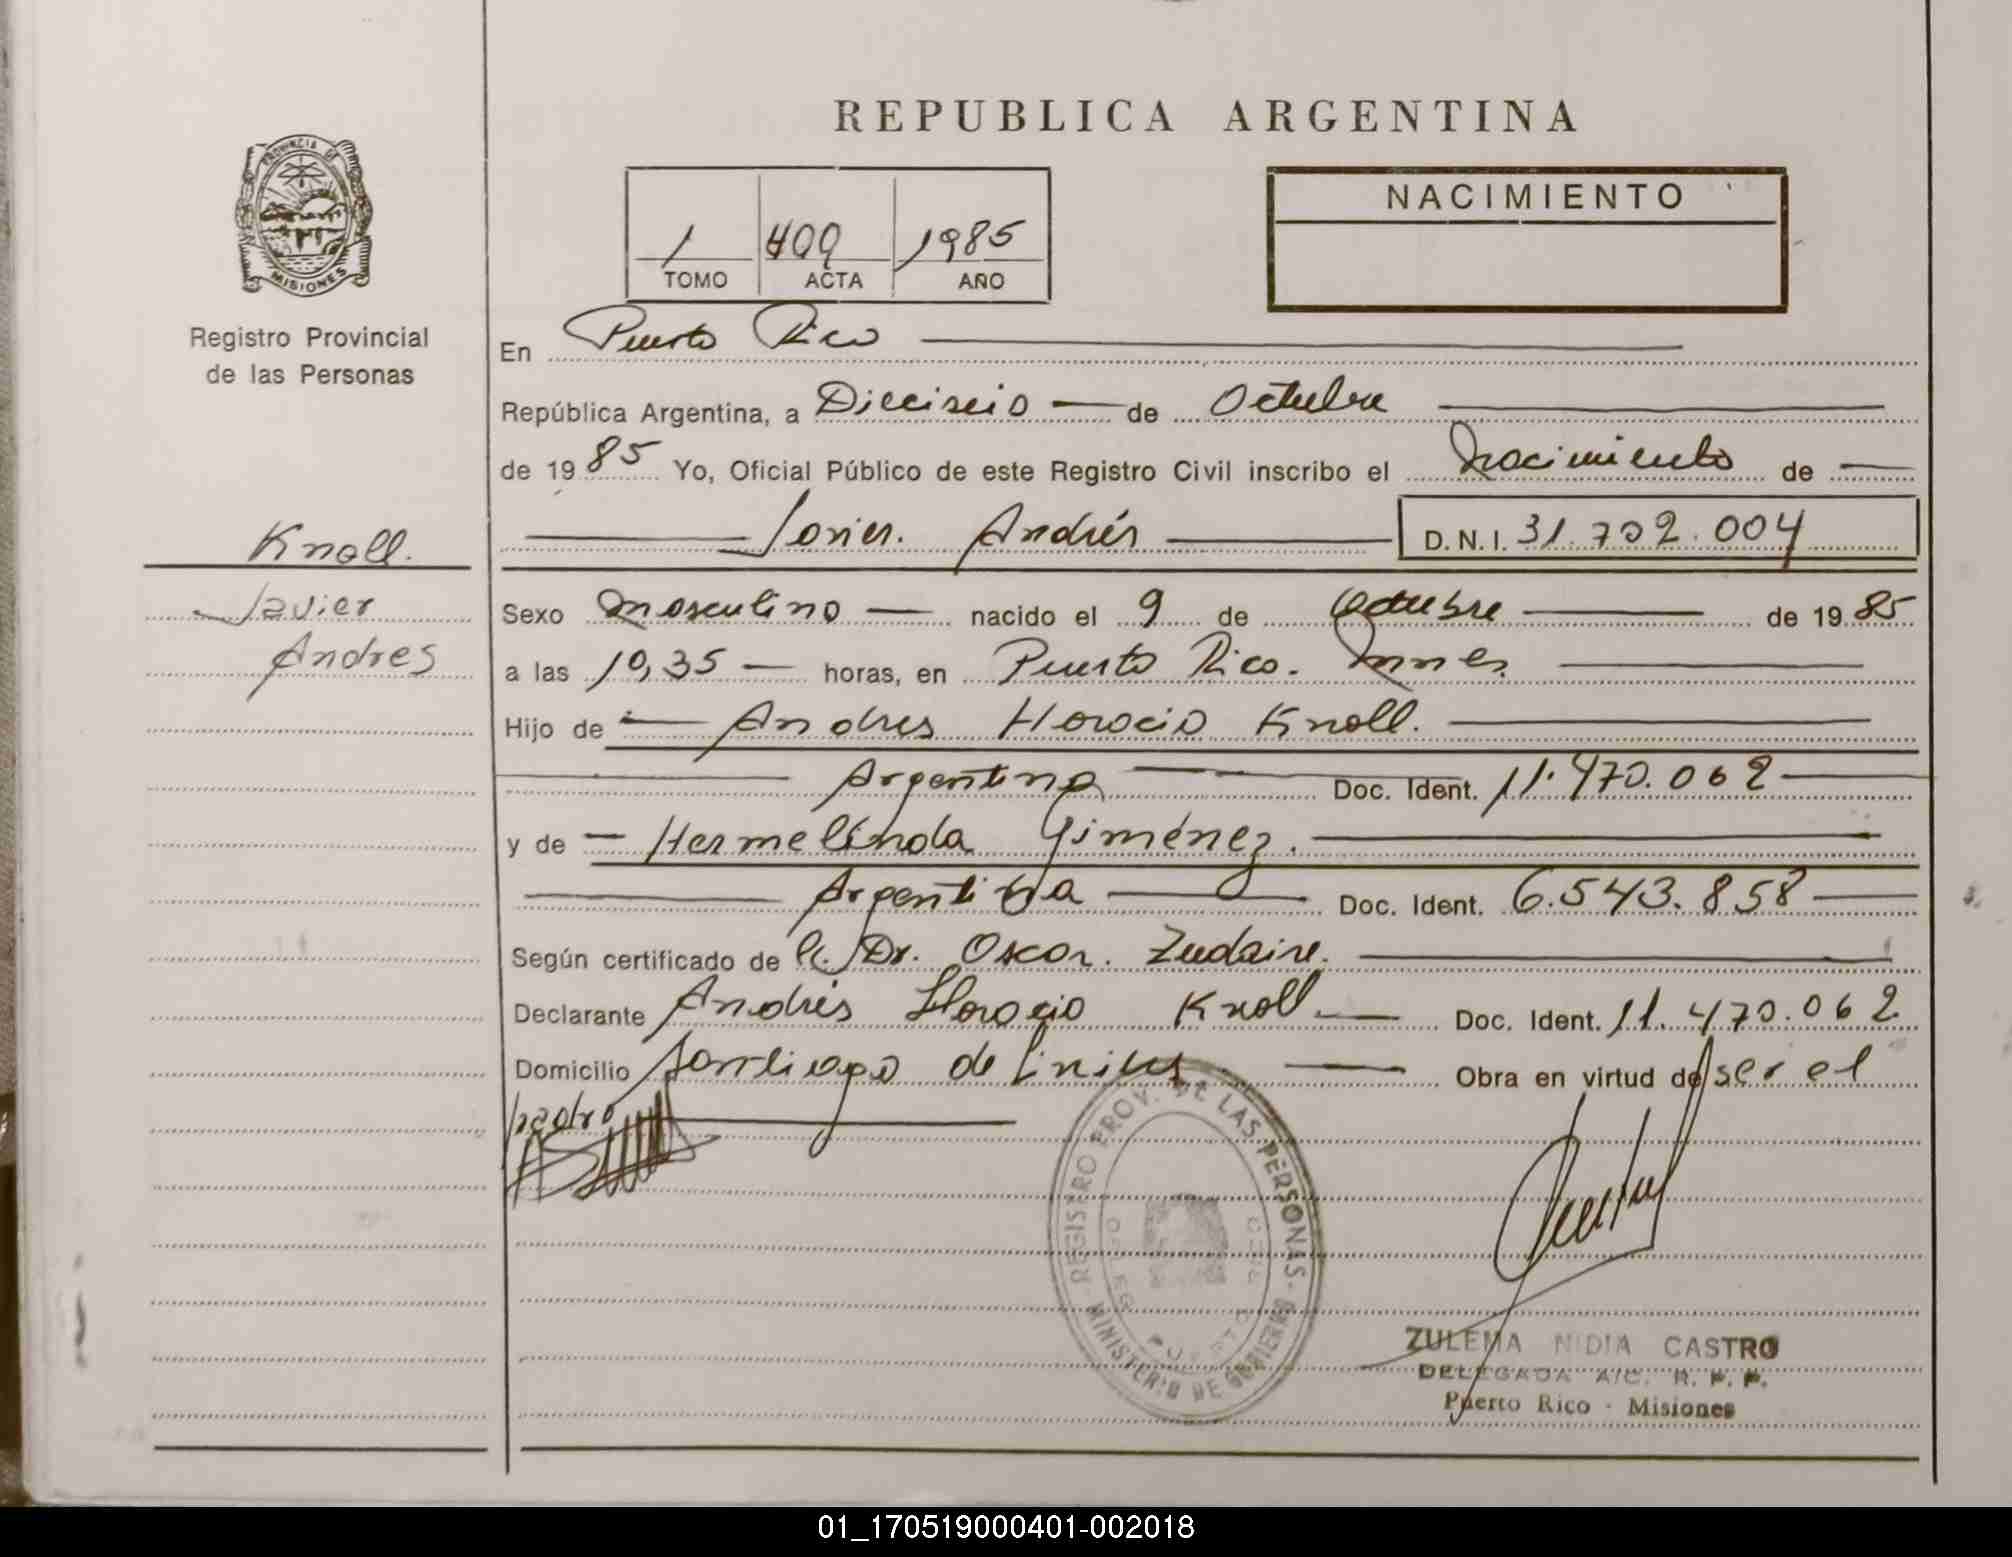 REPUBLICA ARGENTINA
PROVINCIA DE
MISIONES
Registro Provincial
de las Personas
1 400 1985
TOMO ACTA AÑO
NACIMIENTO
En Puerto Rico
República Argentina, a Dieciseis de Octubre
de 1985 Yo, Oficial Público de este Registro Civil inscribo el Nacimiento de
Javier Andrés D.N.I. 31.702.004
Knoll.
Javier
Andres
Sexo Masculino nacido el 9 de Octubre de 1985
a las 10,35 horas, en Puerto Rico. Mnes.
Hijo de Andres Horacio Knoll.
Argentino Doc. Ident. 11.470.062
y de Hermelinda Giménez.
Argentina Doc. Ident. 6.543.858
Según certificado de Dr. Oscar Zudaire.
Declarante Andrés Horacio Knoll Doc. Ident. 11.470.062
Domicilio Santiago de Liniers Obra en virtud de ser el
padre
REGISTRO PROV. DE LAS PERSONAS
MINISTERIO DE GOBIERNO
ZULEMA NIDIA CASTRO
DELEGADA A/C. R. P. P.
Puerto Rico - Misiones
01_170519000401-002018